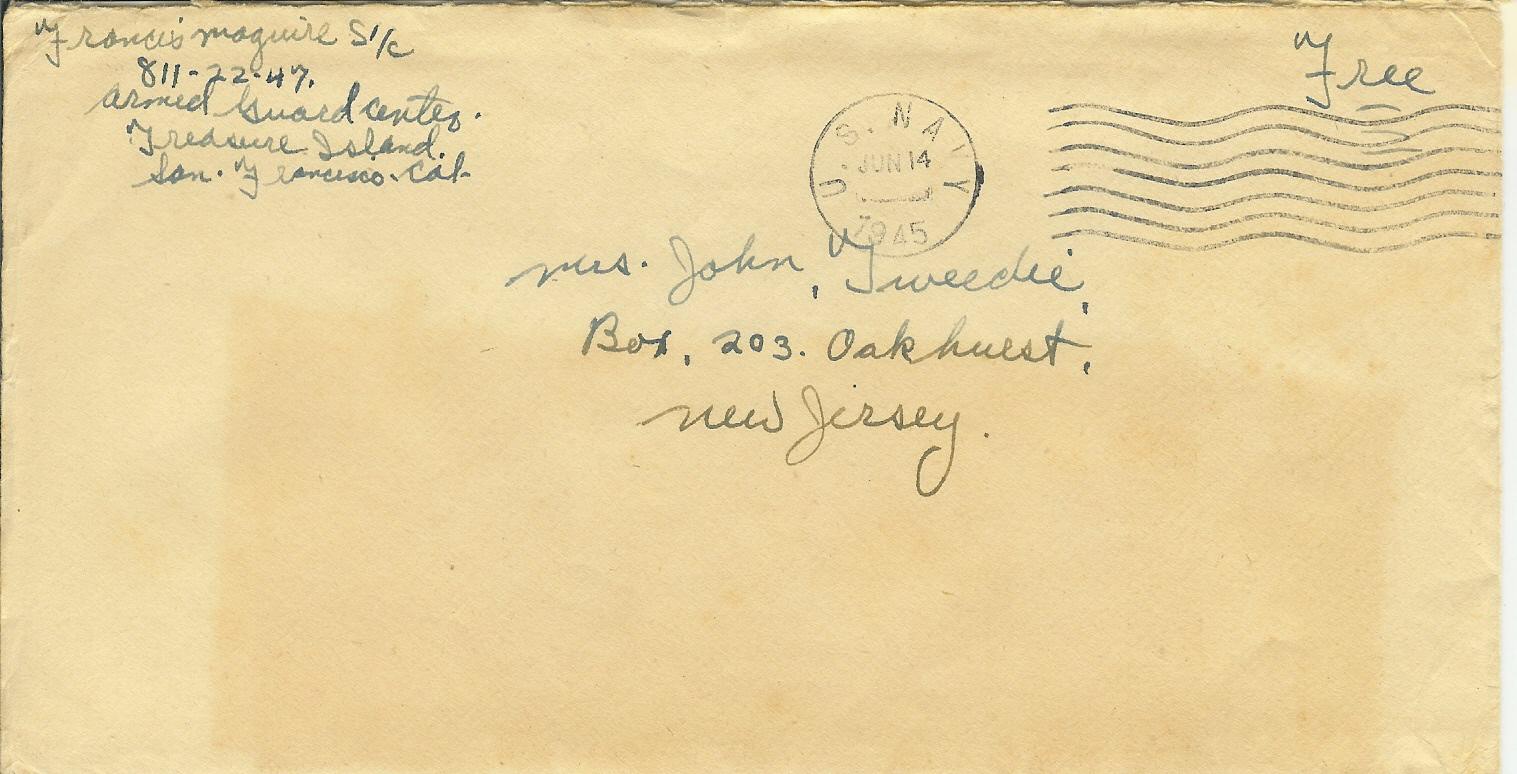 Francis Maguire S1/c
811-22-47.
Armed Guard Center.
Treasure Island.
San. Francisco. Cal.
Free
U.S. NAVY
JUN 14
1945
Mrs. John, Tweedie,
Box, 203. Oakhurst,
New Jersey.